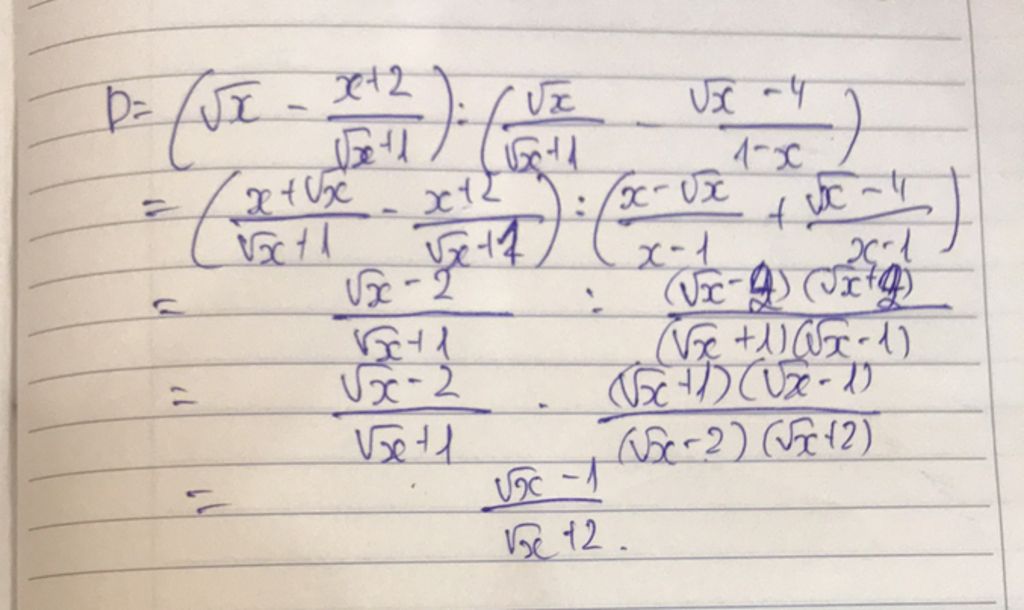 D = (√x - (x+2)/(√x+1)) : (√x/(√x+1) - (√x-4)/(1-x))
= ((x+√x)/(√x+1) - (x+2)/(√x+1)) : ((x-√x)/(x-1) + (√x-4)/(x-1))
= (√x-2)/(√x+1) : ((√x-2)(√x+2))/((√x+1)(√x-1))
= (√x-2)/(√x+1) . ((√x+1)(√x-1))/((√x-2)(√x+2))
= (√x-1)/(√x+2).